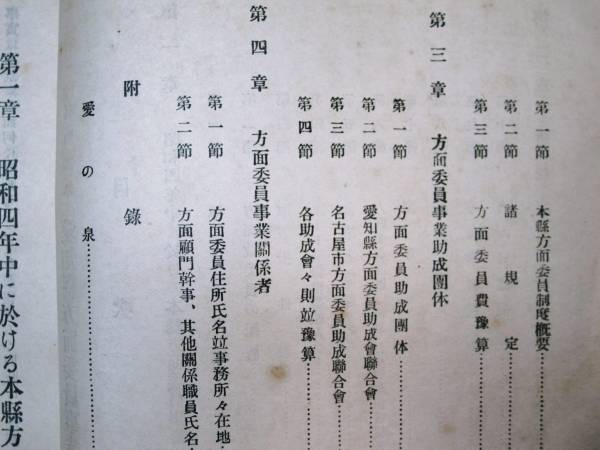 第一節　本縣方面委員制度概要………
第二節　諸規定………
第三節　方面委員費豫算………
第三章　方面委員事業助成團体
第一節　方面委員助成團体………
第二節　愛知縣方面委員助成會聯合會………
第三節　名古屋市方面委員助成聯合會………
第四節　各助成會々則竝豫算………
第四章　方面委員事業關係者
第一節　方面委員住所氏名竝事務所々在地
第二節　方面顧問幹事、其他關係職員氏名
附錄
愛の泉………
第一章　昭和四年中に於ける本縣方